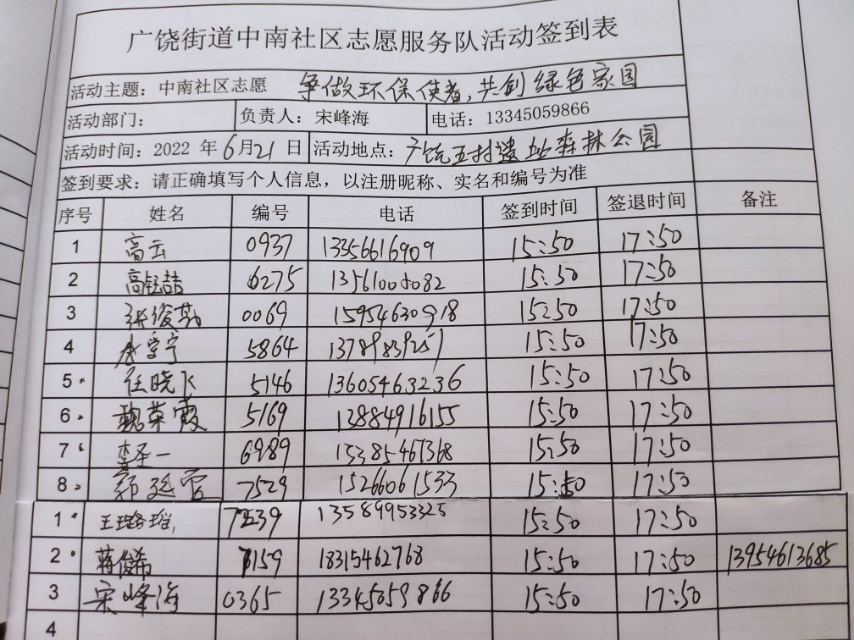 广饶街道中南社区志愿服务队活动签到表
活动主题：中南社区志愿 争做环保使者，共创绿色家园
活动部门： 负责人：宋峰海 电话：13345059866
活动时间：2022 年 6月21 日 活动地点：广饶五村遗址森林公园
签到要求：请正确填写个人信息，以注册昵称、实名和编号为准
序号 姓名 编号 电话 签到时间 签退时间 备注
1 高云 0937 13356616909 15:50 17:50
2 6275 13561008082 15:50 17:50
3 张俊勋 0069 15954630918 15:50 17:50
4 5864 15:50 17:50
5 任晓飞 5146 13605463236 15:50 17:50
6 魏荣霞 5169 13884916155 15:50 17:50
7 6989 15385461368 15:50 17:50
8 郭廷雷 7529 15266061533 15:50 17:50
1 王璐瑶 7239 13589953325 15:50 17:50
2 蒋俊希 7159 18315462768 15:50 17:50 13954613685
3 宋峰海 0365 13345059866 15:50 17:50
4